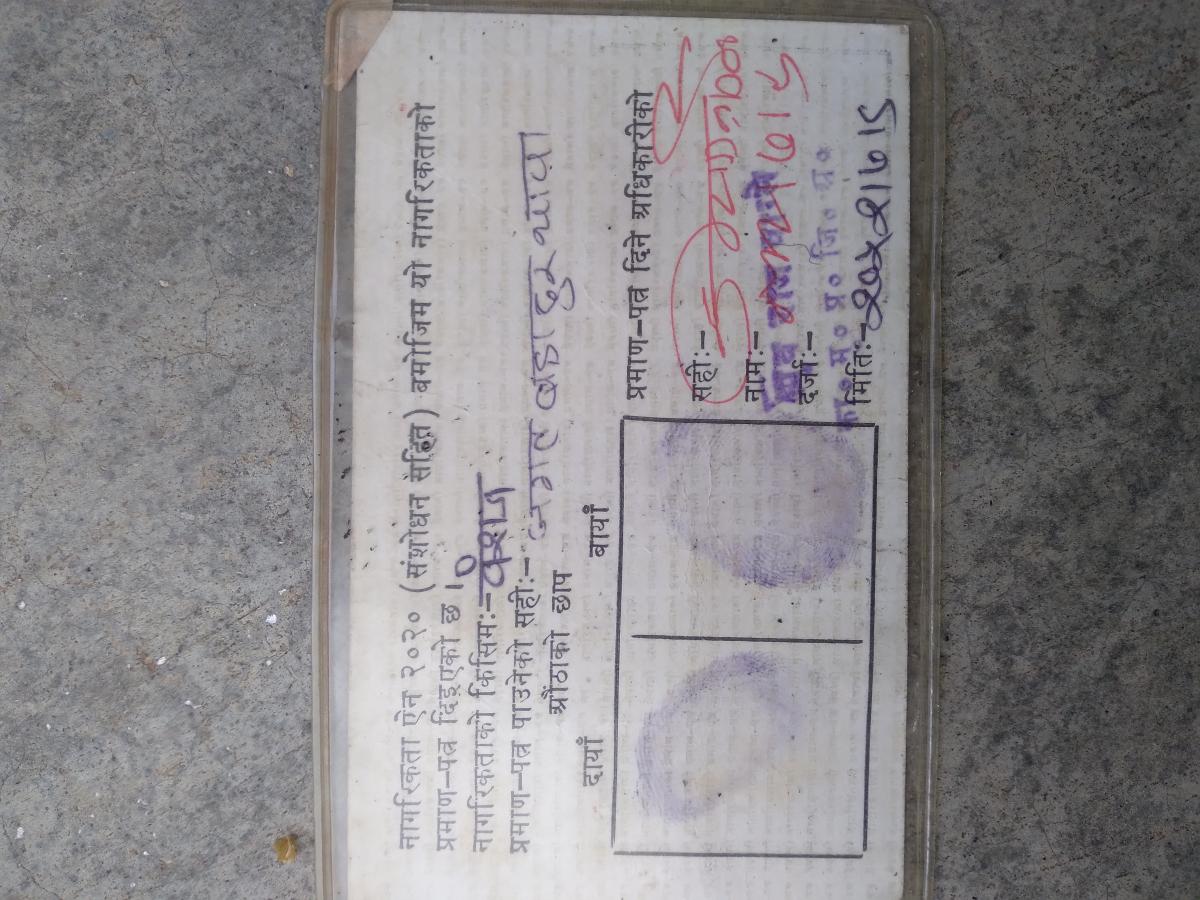 नागरिकता ऐन २०२० (संशोधन सहित) बमोजिम यो नागरिकताको
प्रमाण-पत्र दिइएको छ ।
नागरिकताको किसिम:- वंशज
प्रमाण-पत्र पाउनेको सही:- जगत बहादुर थापा
औंठाको छाप
दायाँ बायाँ
प्रमाण-पत्र दिने अधिकारीको
सही:-
नाम:-
दर्जा:-
का० म० प्र० जि० अ०
मिति:- २०५१।७।८